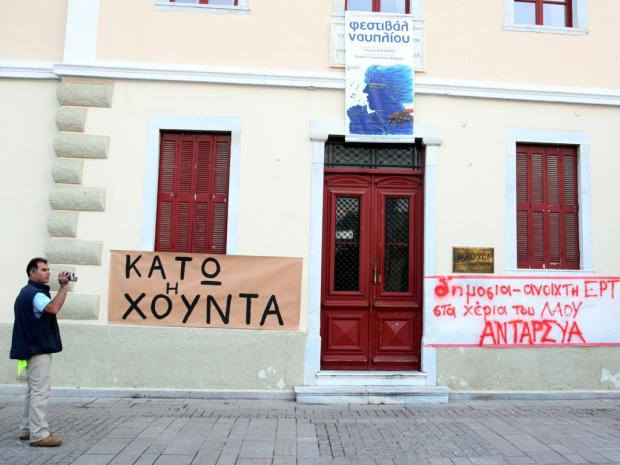 φεστιβάλ
ναυπλίου
ΚΑΤΩ
Η
ΧΟΥΝΤΑ
δημοσια-ανοιχτη ΕΡΤ
στα χέρια του ΛΑΟΥ
ΑΝΤΑΡΣΥΑ